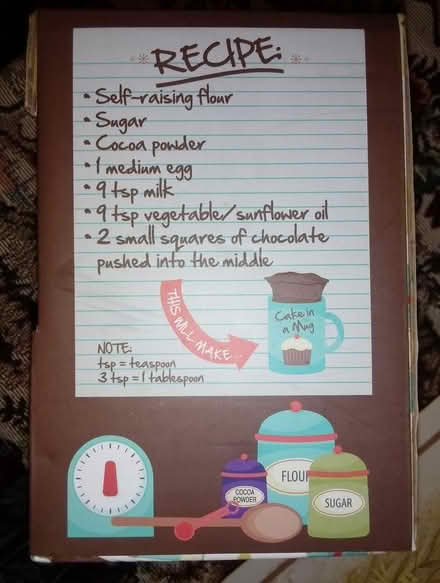 RECIPE:
• Self-raising flour
• Sugar
• Cocoa powder
• 1 medium egg
• 9 tsp milk
• 9 tsp vegetable/sunflower oil
• 2 small squares of chocolate
pushed into the middle
THIS WILL MAKE...
Cake in
a Mug
NOTE:
tsp = teaspoon
3 tsp = 1 tablespoon
COCOA
POWDER
FLOUR
SUGAR